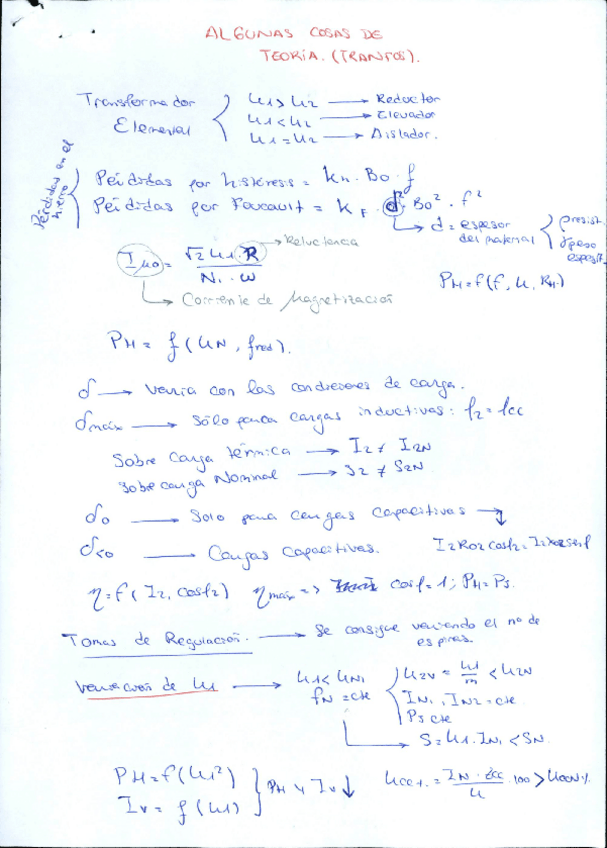 ALGUNAS COSAS DE
TEORÍA. (TRANFOS).
Transformador Elemental
U1 > U2 → Reductor
U1 < U2 → Elevador
U1 = U2 → Aislador.
Pérdidas en el hierro
Pérdidas por histéresis = KH · B0 · f
Pérdidas por Foucault = KF · d² · B0² · f²
d = espesor del material
Iμ0 = √2 U1 · R / N1 · ω
Reluctancia
Corriente de Magnetización
PH = f(f, U, RH)
PH = f (UN, fred).
δ → Varía con las condiciones de carga.
δmáx → Sólo para cargas inductivas: φ2 = φcc
Sobre Carga térmica → I2 ≠ I2N
Sobre carga Nominal → S2 ≠ S2N
δ0 → Solo para cargas capacitivas
I2R02 cosφ2 = I2X02 senφ
δ<0 → Cargas Capacitivas.
η = f(I2, cosφ2) ηmáx => cosφ=1; PH=Ps.
Tomas de Regulación. → Se consigue variando el nº de espiras.
Variación de U1 → U1 < UN1
fN = cte
U2V = U1/m < U2N
IN1, IN2 = cte
Ps cte
S = U1 · IN1 < SN
PH = f(U1²)
IV = f(U1)
PH y IV ↓
Ucc% = IN · Zcc / U · 100 > UccN%